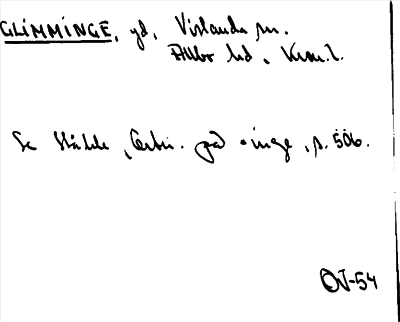 GLIMMINGE, gd, Vislanda sn.
Allbo hd, Kron.l.
Se Ståhle, Ortn. på -inge, s. 506.
OJ-54